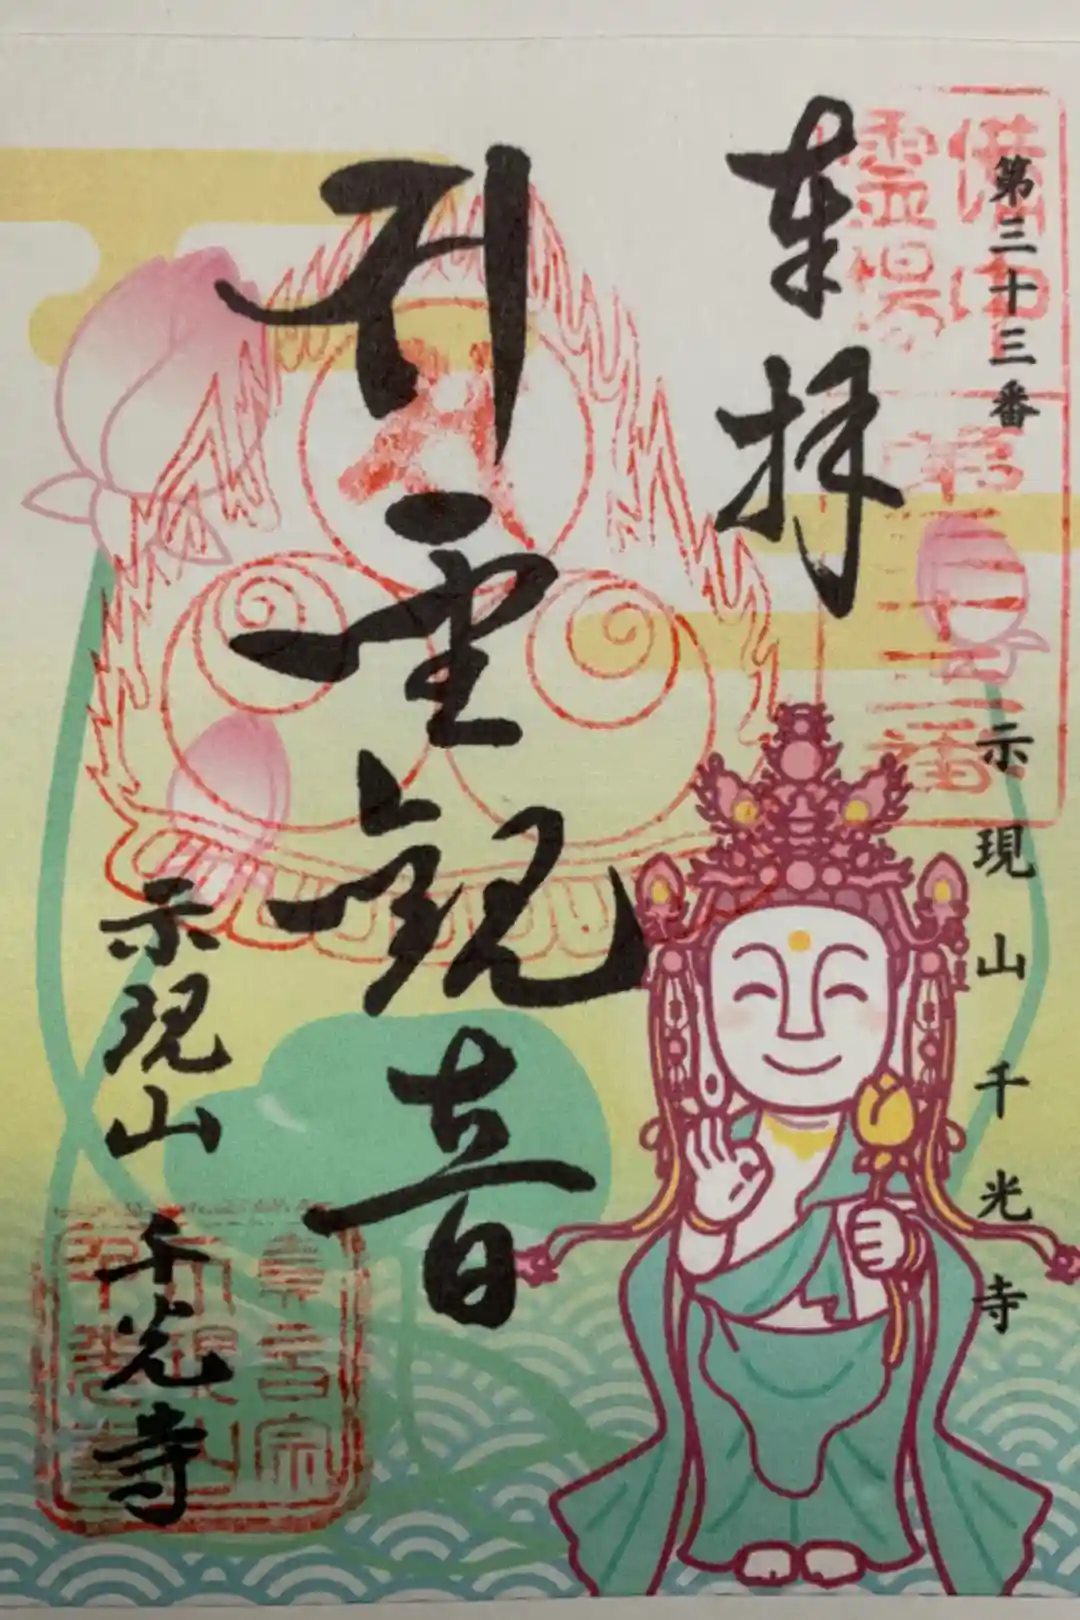 第三十三番
示現山千光寺
霊場
第三十三番
奉拝
聖観音
示現山 千光寺
真言宗
示現山
千光寺